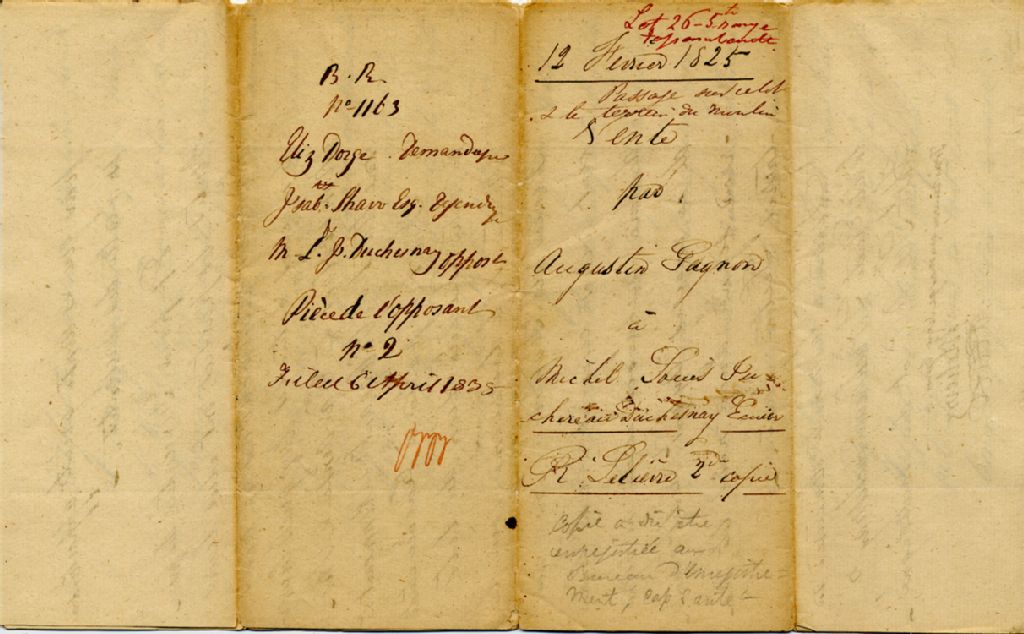 B. R.
No 1163
Eliz Dorge Demanderesse
Isab. Shaw Esq. Defendr
M. L. J. Duchesnay oppost
Pièce de l'opposant
No 2
Filed 6 April 1835
Lot 26 - 5th range
12 Fevrier 1825
Passage sur celot
& le terrein du moulin
Vente
par
Augustin Gagnon
à
Michel Louis Ju-
chereau Duchesnay Ecuier
R. Lelievre 2de copie
Copie a dû être
enregistrée au
Bureau d'Enregistre-
ment Cap Santé